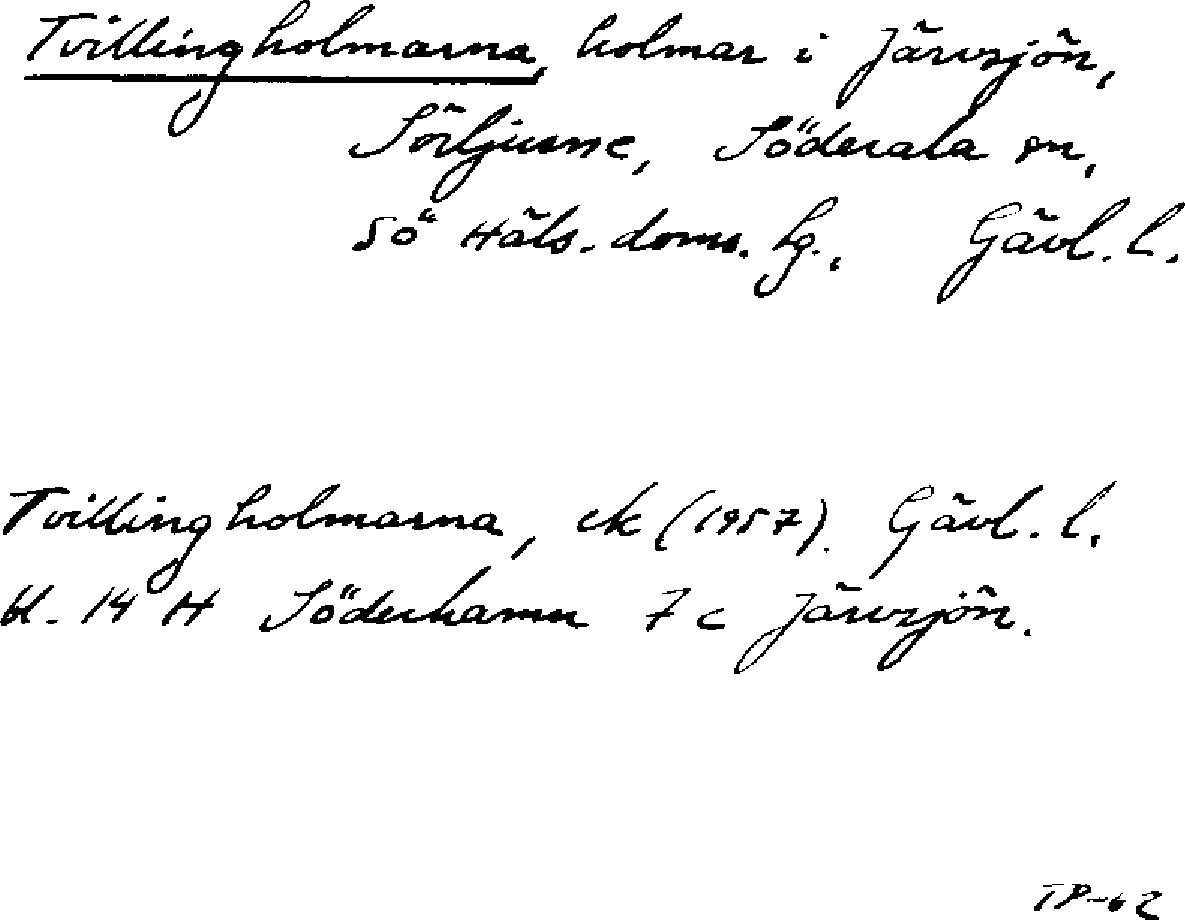 Tvillingholmarna, holmar i Järvsjön,
Sörljusne, Söderala sn,
SÖ Häls. doms. hg., Gävl. l.
Tvillingholmarna, ek (1957). Gävl. l.
bl. 14 H Söderhamn 7 c Järvsjön.
TP-62